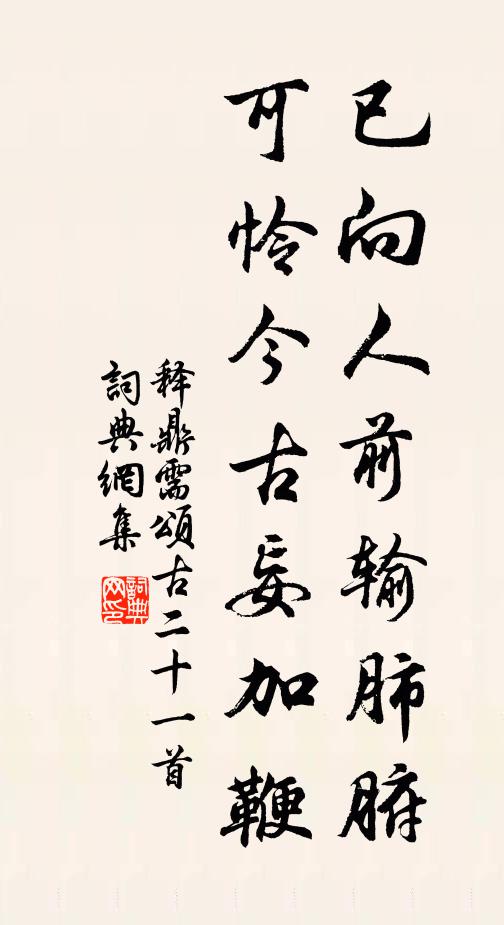 已向人前输肺腑
可怜今古妄加鞭
释鼎需頌古二十一首
詞典網集
詞典網印